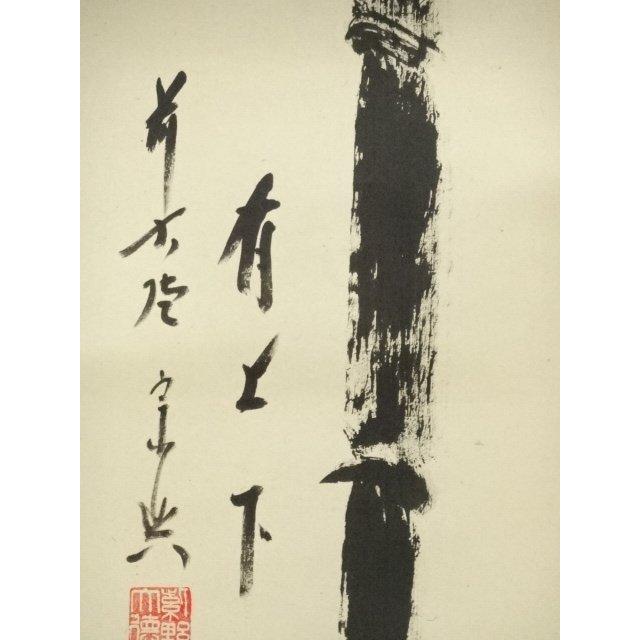 有上下
前大徳 宗